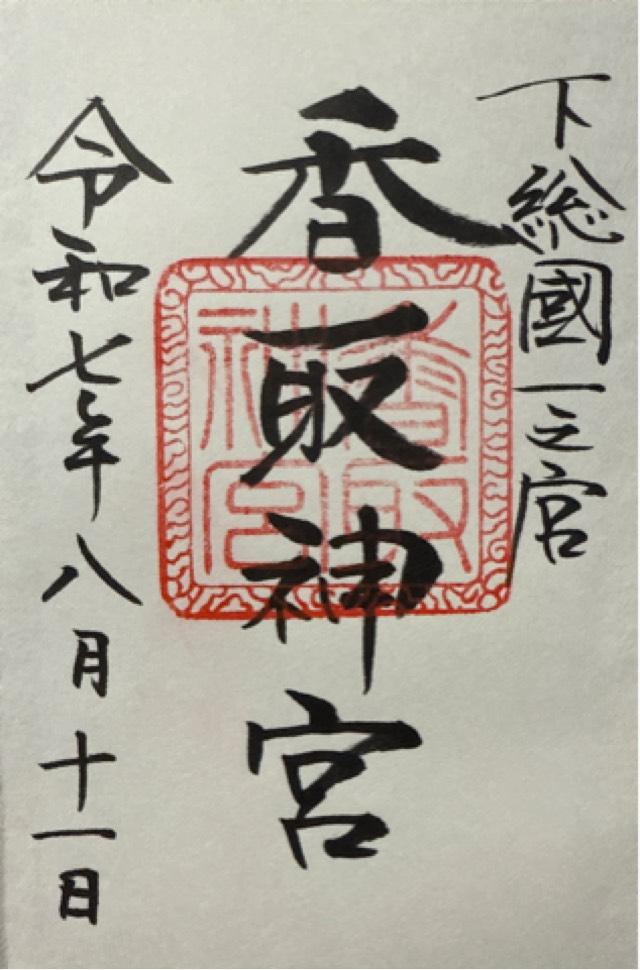 下総國一之宮
香取神宮
香取神宮
令和七年八月十一日